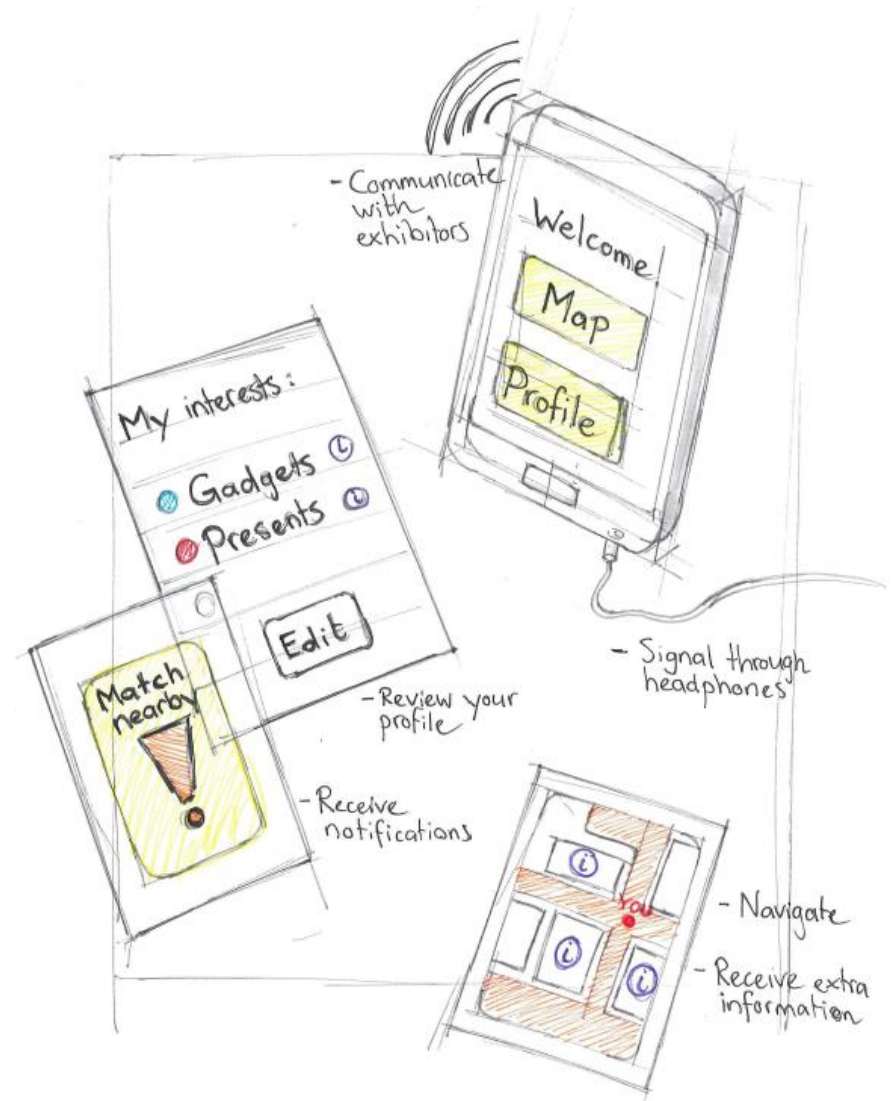 - Communicate
with
exhibitors
Welcome
Map
Profile
My interests:
Gadgets i
Presents i
Edit
- Signal through
headphones
Match
nearby
!
- Review your
profile
- Receive
notifications
i
YOU
i
i
- Navigate
- Receive extra
information